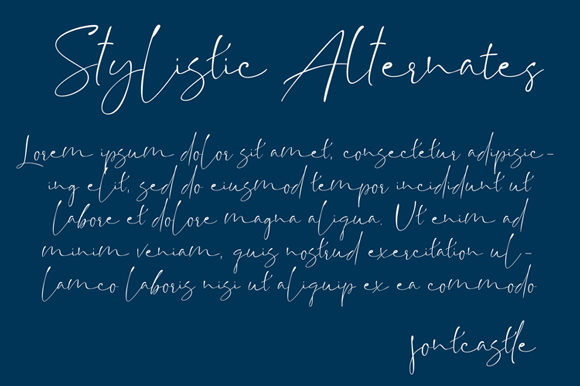 Stylistic Alternates
Lorem ipsum dolor sit amet, consectetur adipisic-
ing elit, sed do eiusmod tempor incididunt ut
labore et dolore magna aliqua. Ut enim ad
minim veniam, quis nostrud exercitation ul-
lamco laboris nisi ut aliquip ex ea commodo
fontcastle